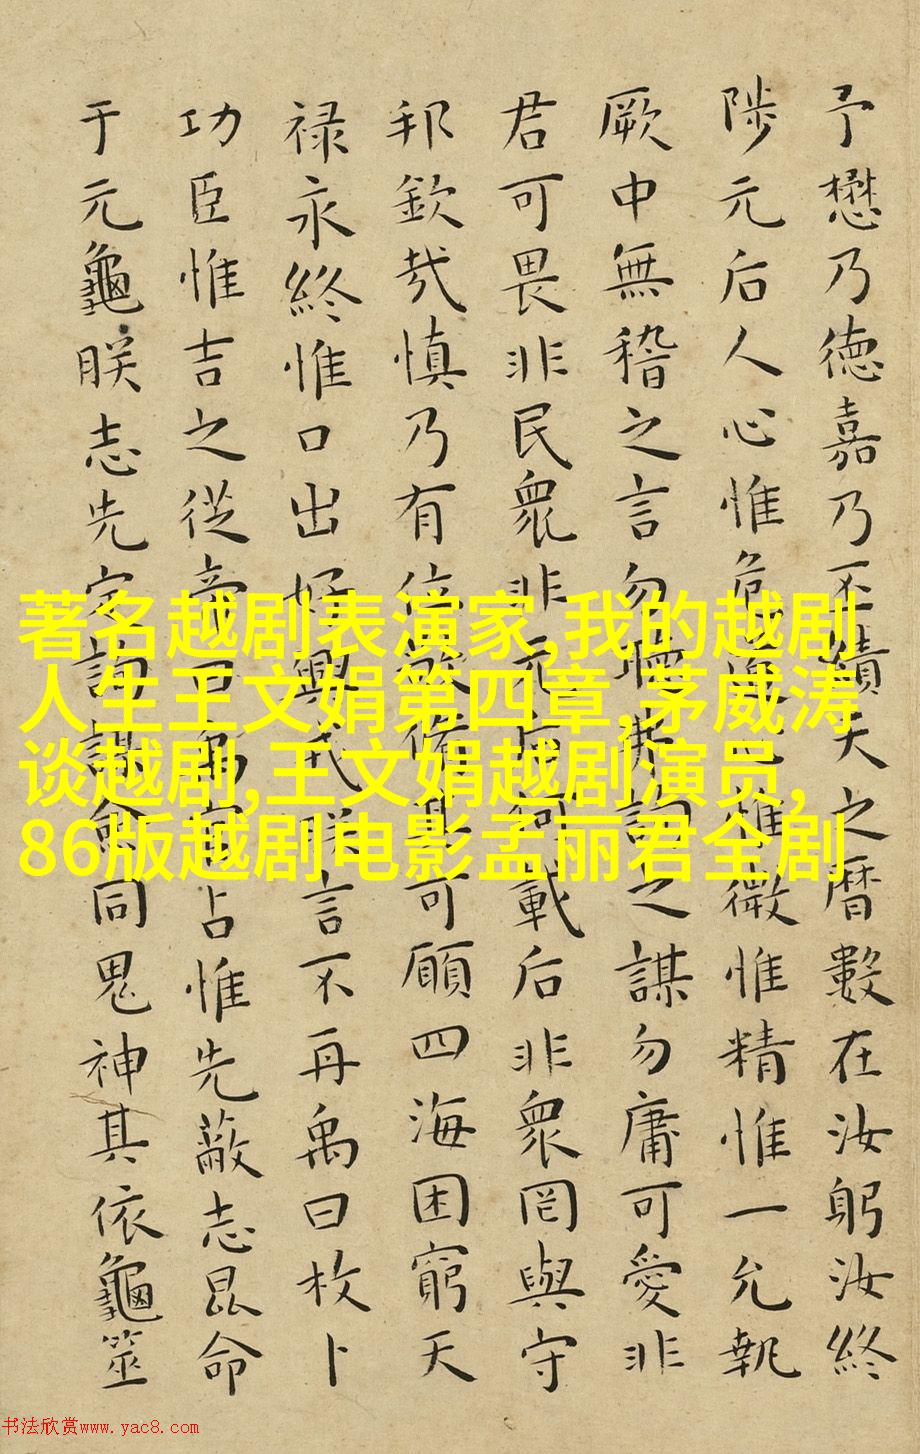 予懋乃德嘉乃不績天之曆數在汝躬汝終
陟元后人心惟危道心惟微惟精惟一允執
厥中無稽之言勿聴弗詢之謀勿庸可愛非
君可畏非民衆非元后何載后非衆罔與守
邦欽㢤慎乃有位敬脩其可願四海困窮天
禄永終惟口出好興戎朕言不再禹曰枚卜
功臣惟吉之從帝曰禹官占惟先蔽志昆命
于元龜朕志先定詢謀僉同鬼神其依龜筮
著名越剧表演家,我的越剧
人生王文娟第四章,茅威涛
谈越剧,王文娟越剧演员,
86版越剧电影孟丽君全剧
书法欣赏www.yac8.com